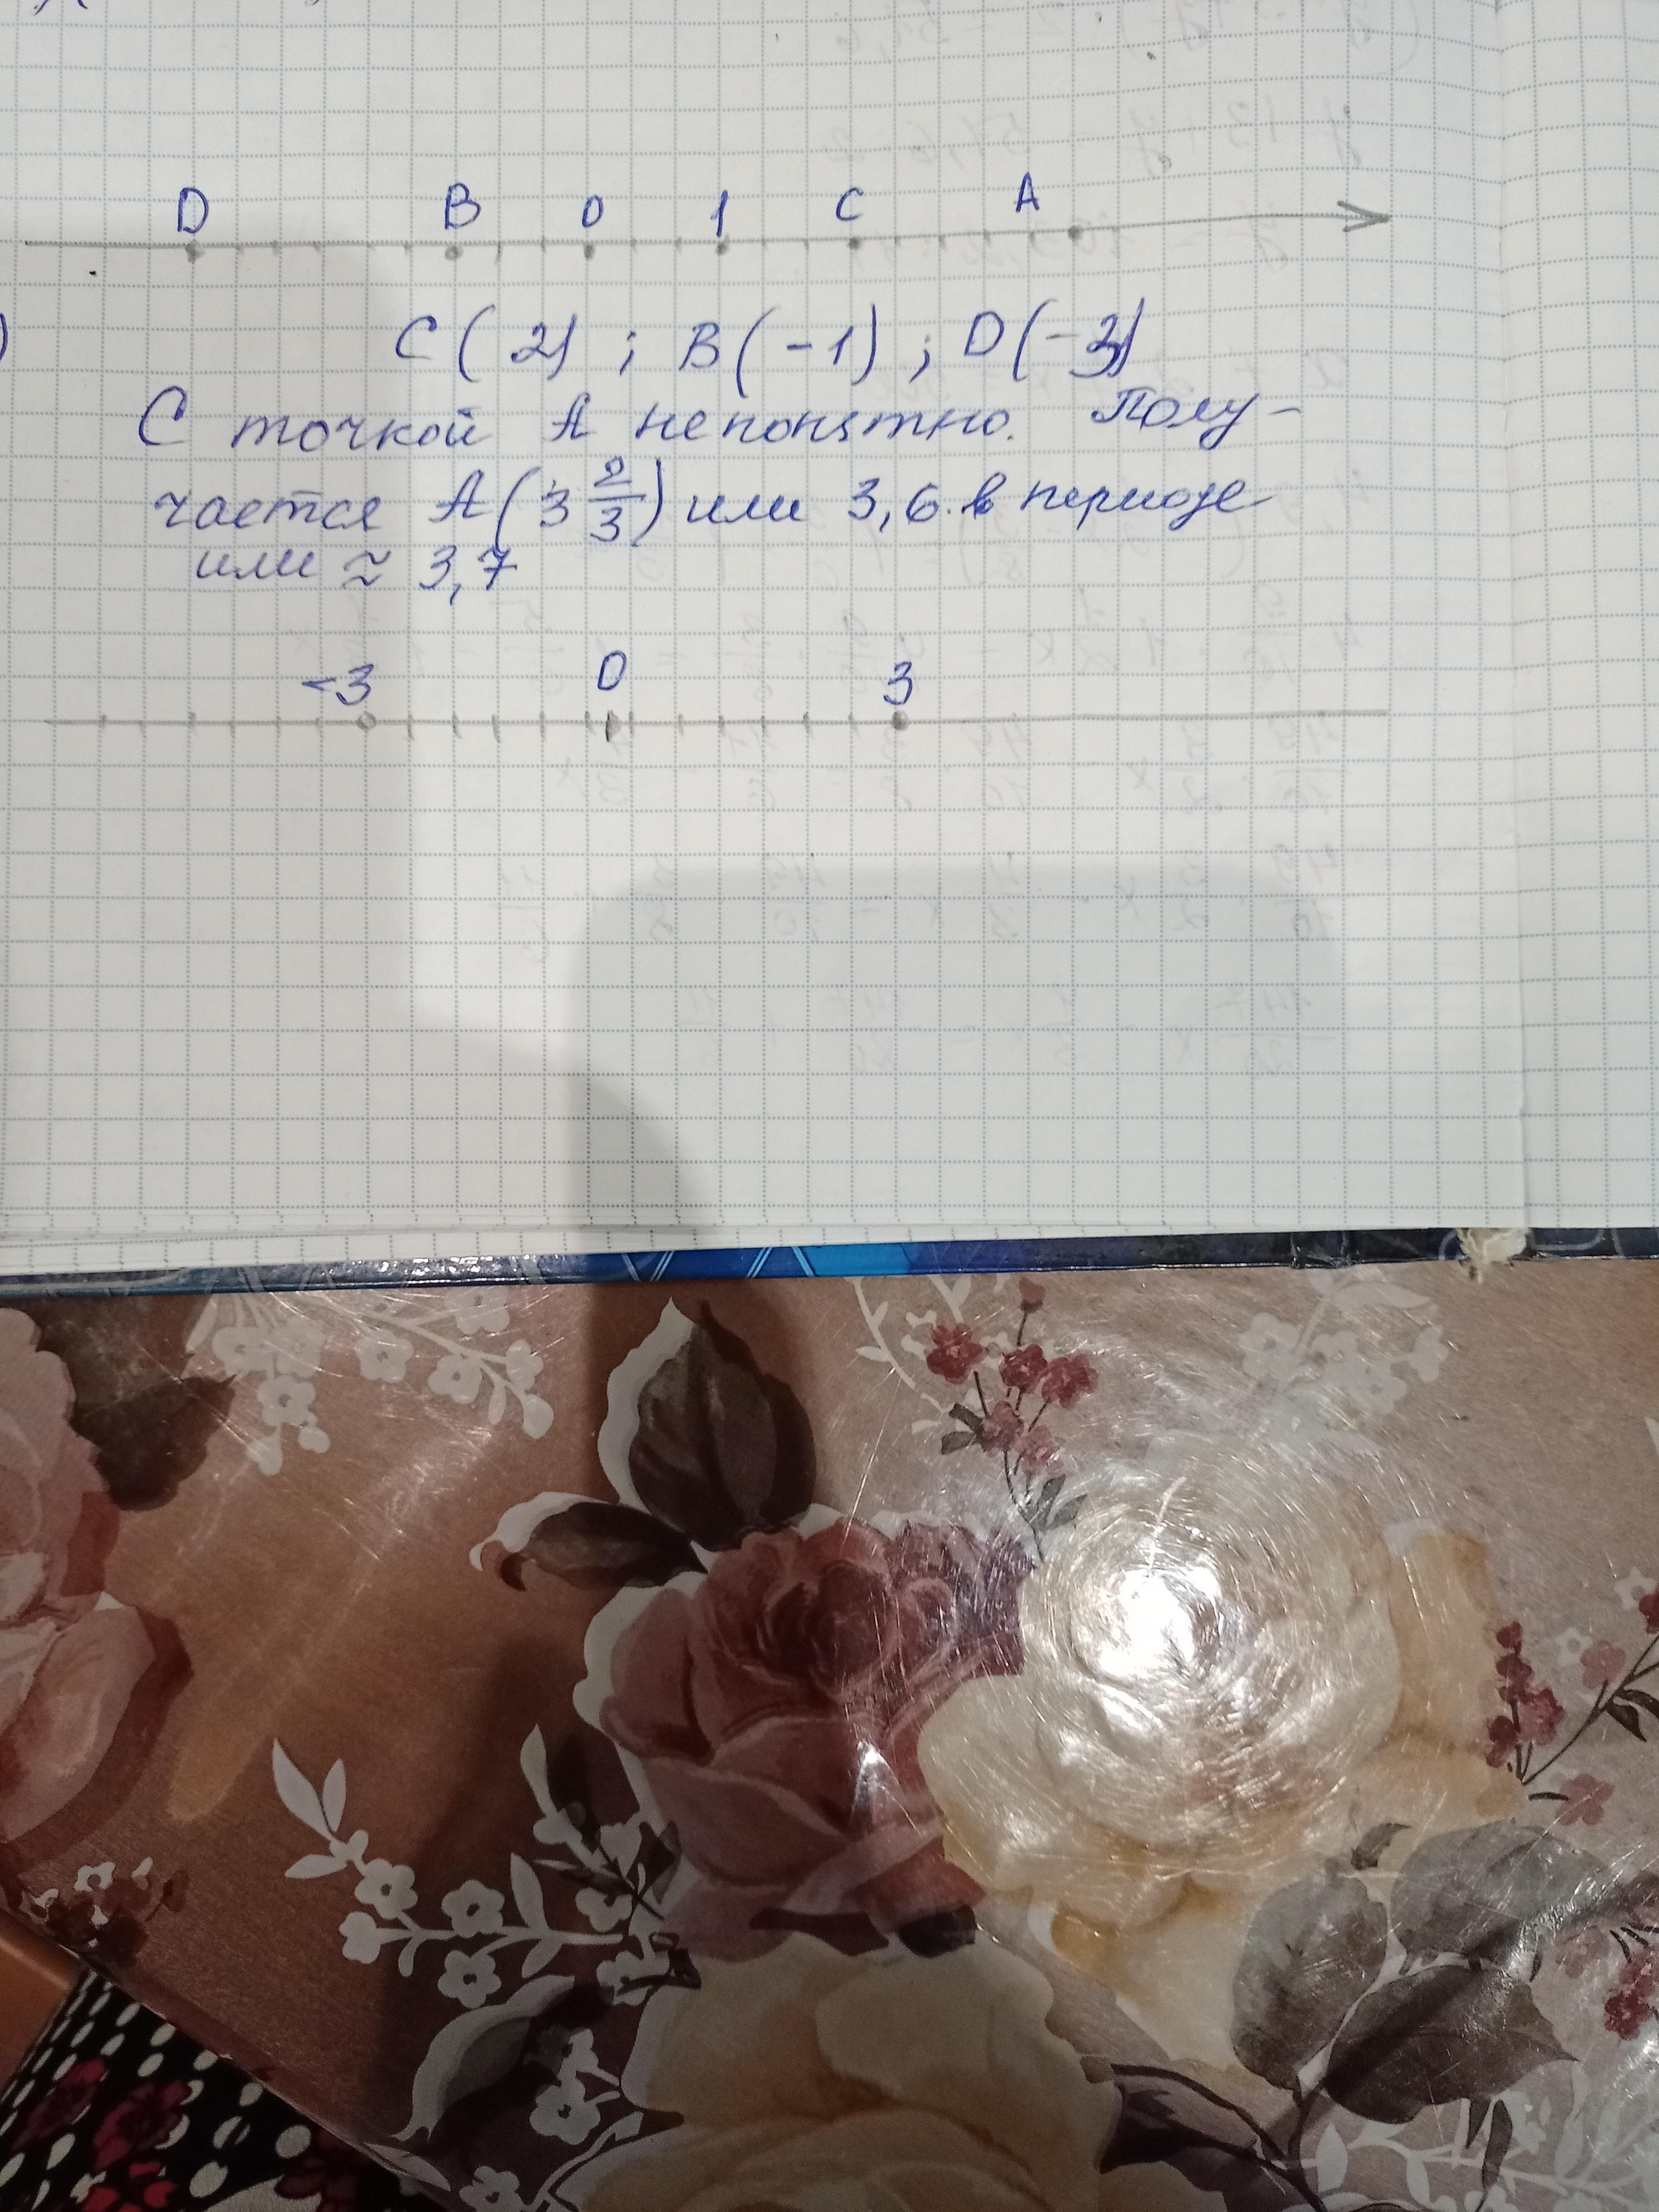 D B 0 1 C A
C(2) ; B(-1) ; D(-3)
С точкой А непонятно. Полу-
чается А(3 2/3) или 3,6 в периоде
или ≈ 3,7
-3 0 3